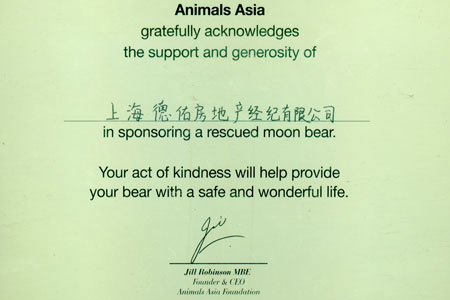 Animals Asia
gratefully acknowledges
the support and generosity of
上海德佑房地产经纪有限公司
in sponsoring a rescued moon bear.
Your act of kindness will help provide
your bear with a safe and wonderful life.
Jill
Jill Robinson MBE
Founder & CEO
Animals Asia Foundation